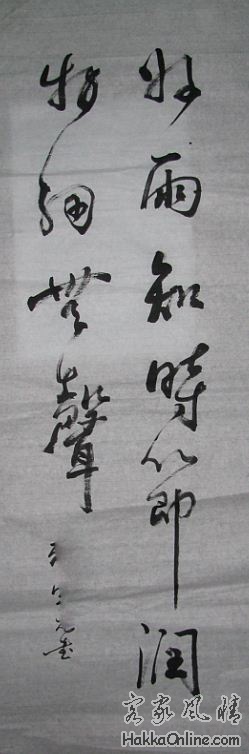 好雨知時節潤
物細無聲
客家風情
HakkaOnline.com